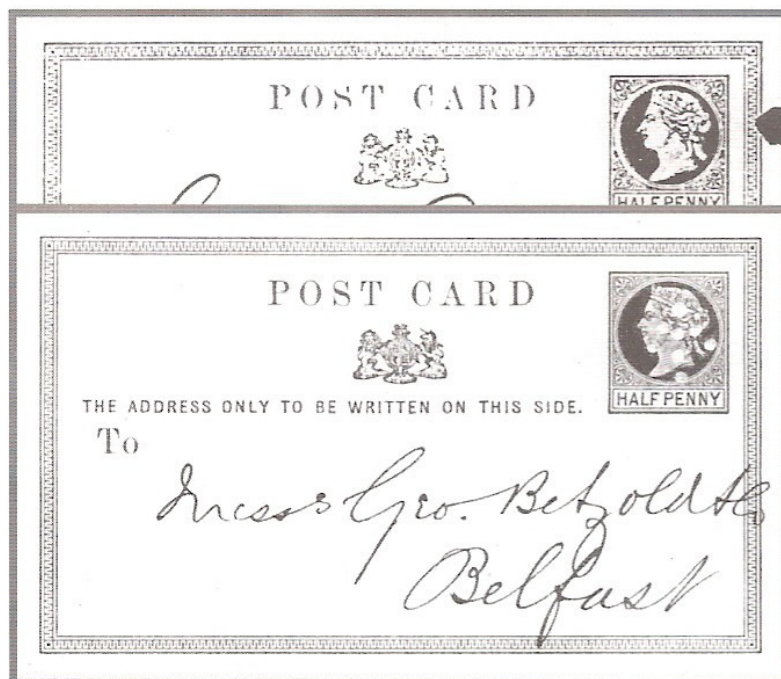 POST CARD
HALFPENNY
POST CARD
HALFPENNY
THE ADDRESS ONLY TO BE WRITTEN ON THIS SIDE.
To
Messrs Geo. Betzold & Co
Belfast